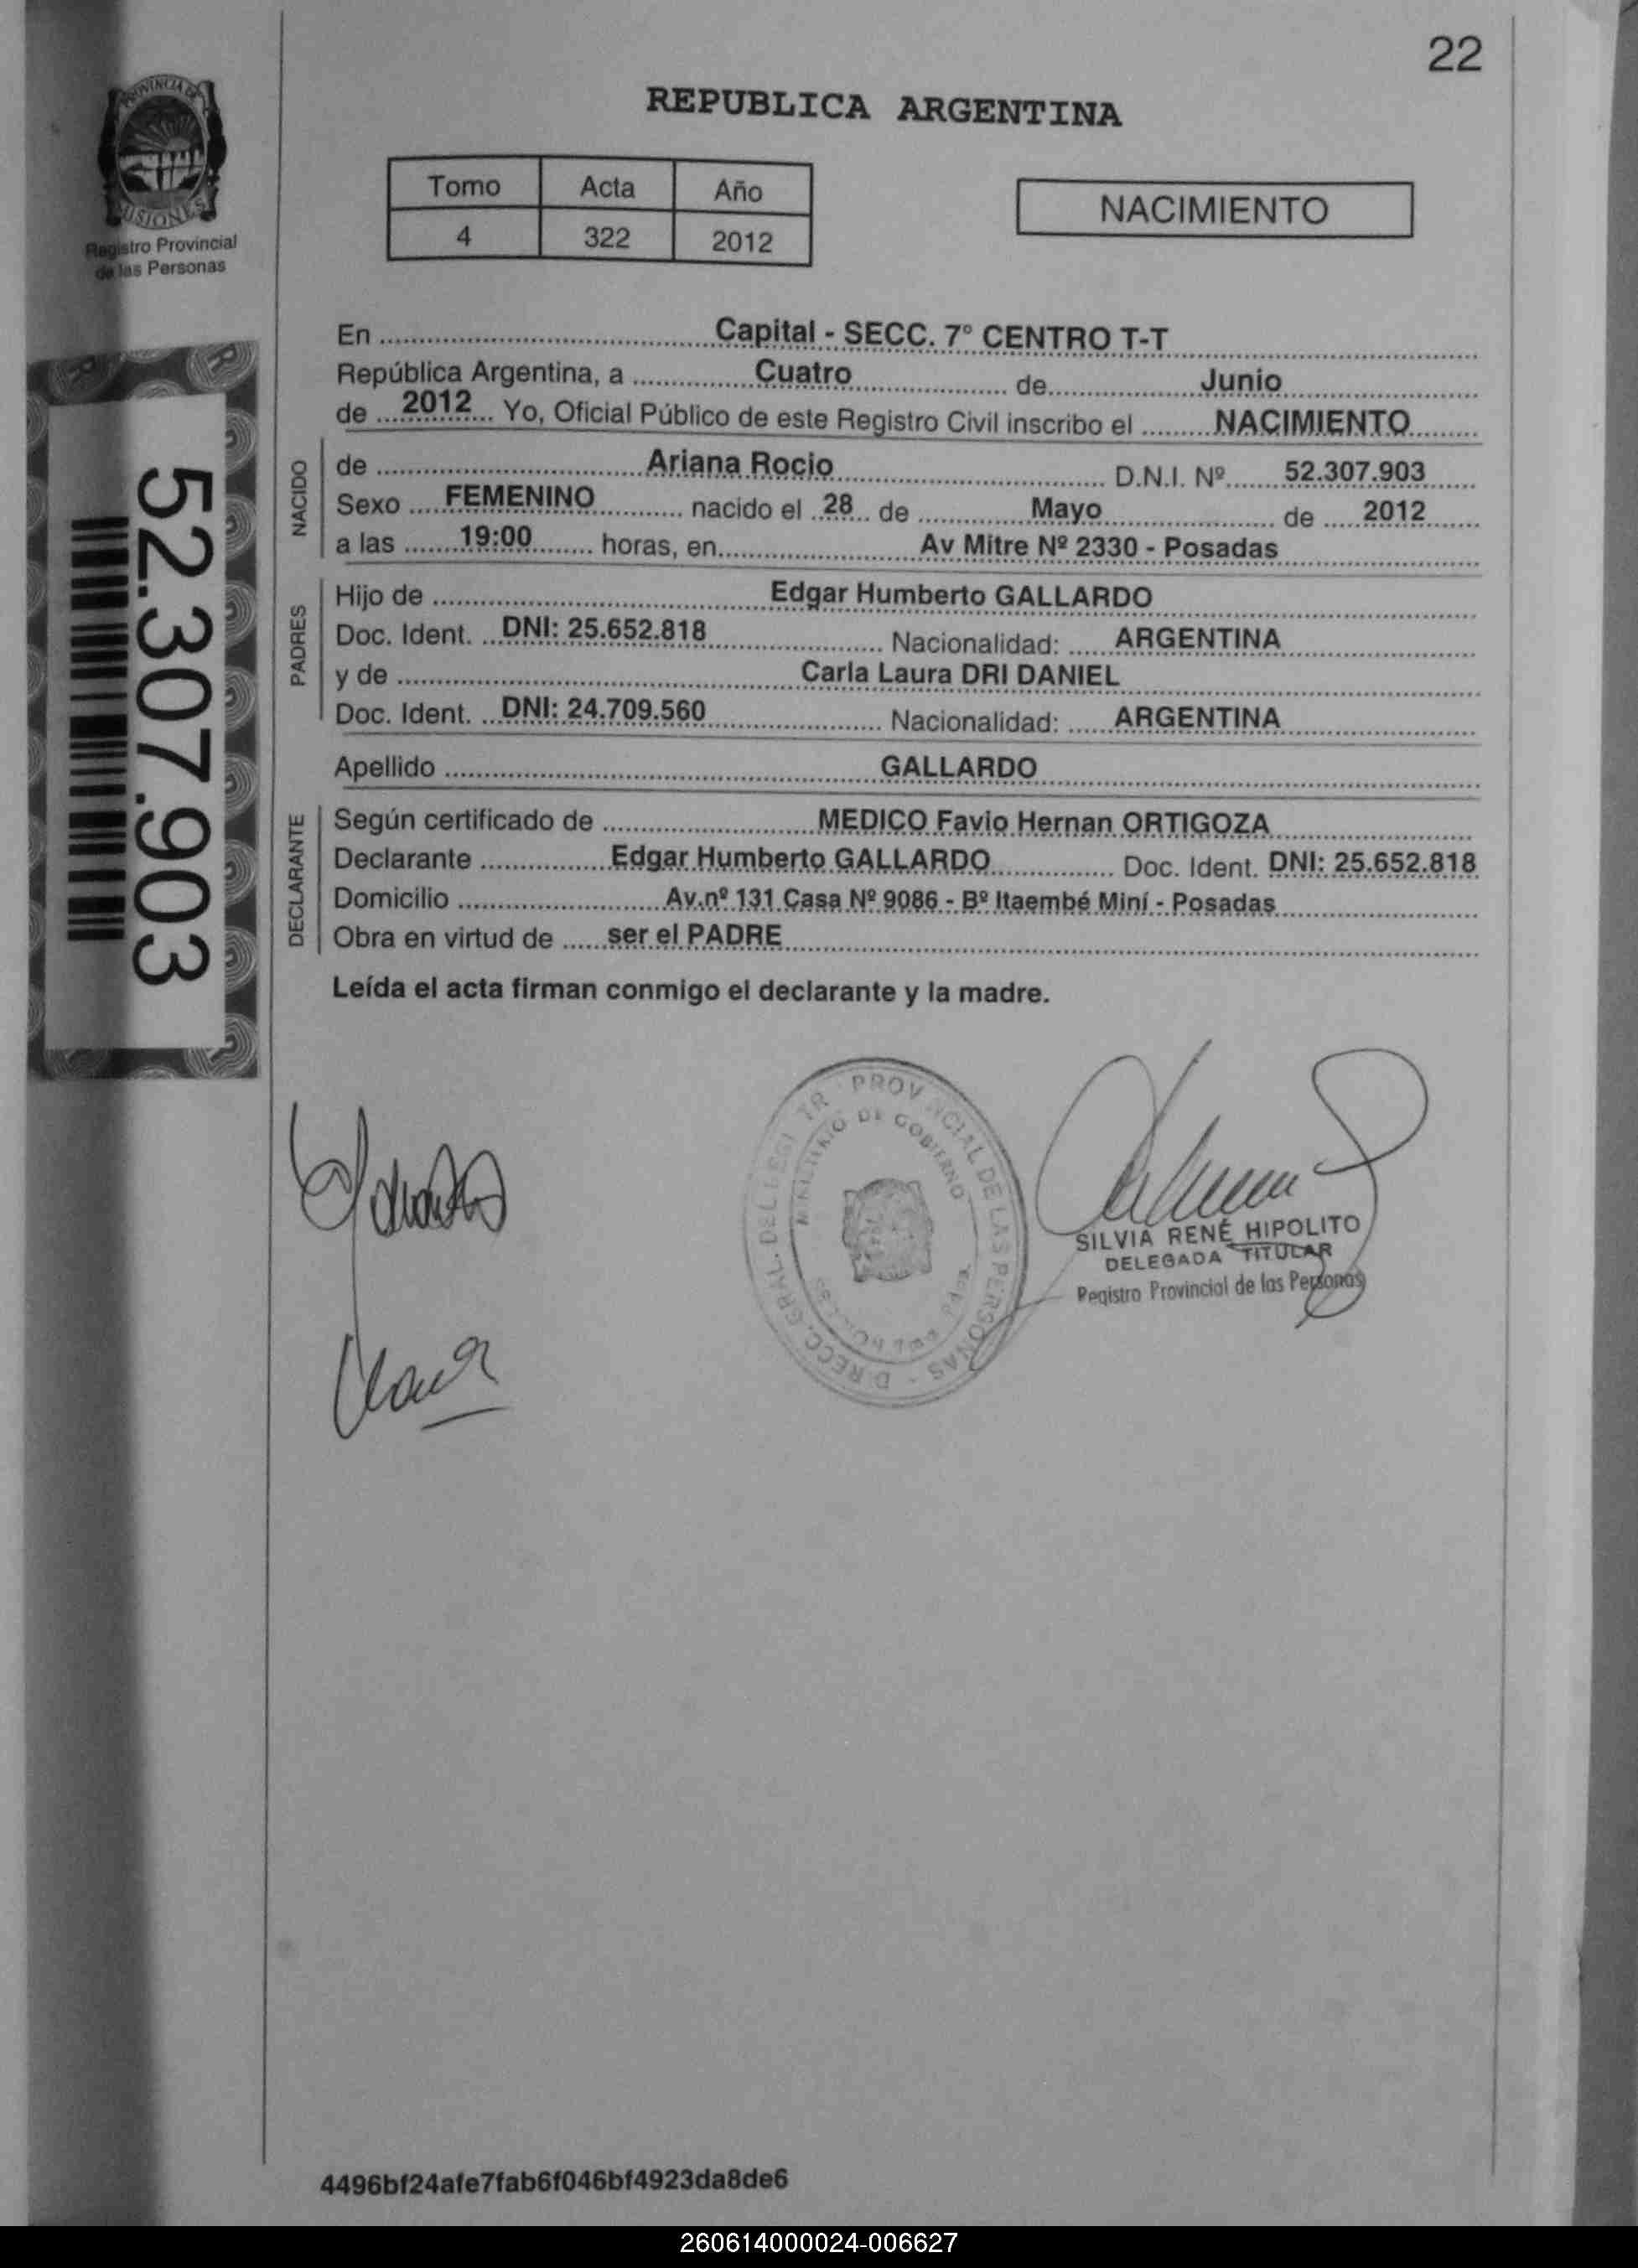 22
REPUBLICA ARGENTINA
PROVINCIA DE
MISIONES
Registro Provincial
de las Personas
Tomo Acta Año
4 322 2012
NACIMIENTO
En Capital - SECC. 7° CENTRO T-T
República Argentina, a Cuatro de Junio
de 2012 Yo, Oficial Público de este Registro Civil inscribo el NACIMIENTO
NACIDO
de Ariana Rocio D.N.I. Nº 52.307.903
Sexo FEMENINO nacido el 28 de Mayo de 2012
a las 19:00 horas, en Av Mitre Nº 2330 - Posadas
PADRES
Hijo de Edgar Humberto GALLARDO
Doc. Ident. DNI: 25.652.818 Nacionalidad: ARGENTINA
y de Carla Laura DRI DANIEL
Doc. Ident. DNI: 24.709.560 Nacionalidad: ARGENTINA
Apellido GALLARDO
DECLARANTE
Según certificado de MEDICO Favio Hernan ORTIGOZA
Declarante Edgar Humberto GALLARDO Doc. Ident. DNI: 25.652.818
Domicilio Av.nº 131 Casa Nº 9086 - Bº Itaembé Miní - Posadas
Obra en virtud de ser el PADRE
Leída el acta firman conmigo el declarante y la madre.
52.307.903
PROVINCIAL DE LAS PERSONAS - DIRECC. GRAL. DEL
MINISTERIO DE GOBIERNO
SILVIA RENÉ HIPOLITO
DELEGADA TITULAR
Registro Provincial de las Personas
4496bf24afe7fab6f046bf4923da8de6
260614000024-006627